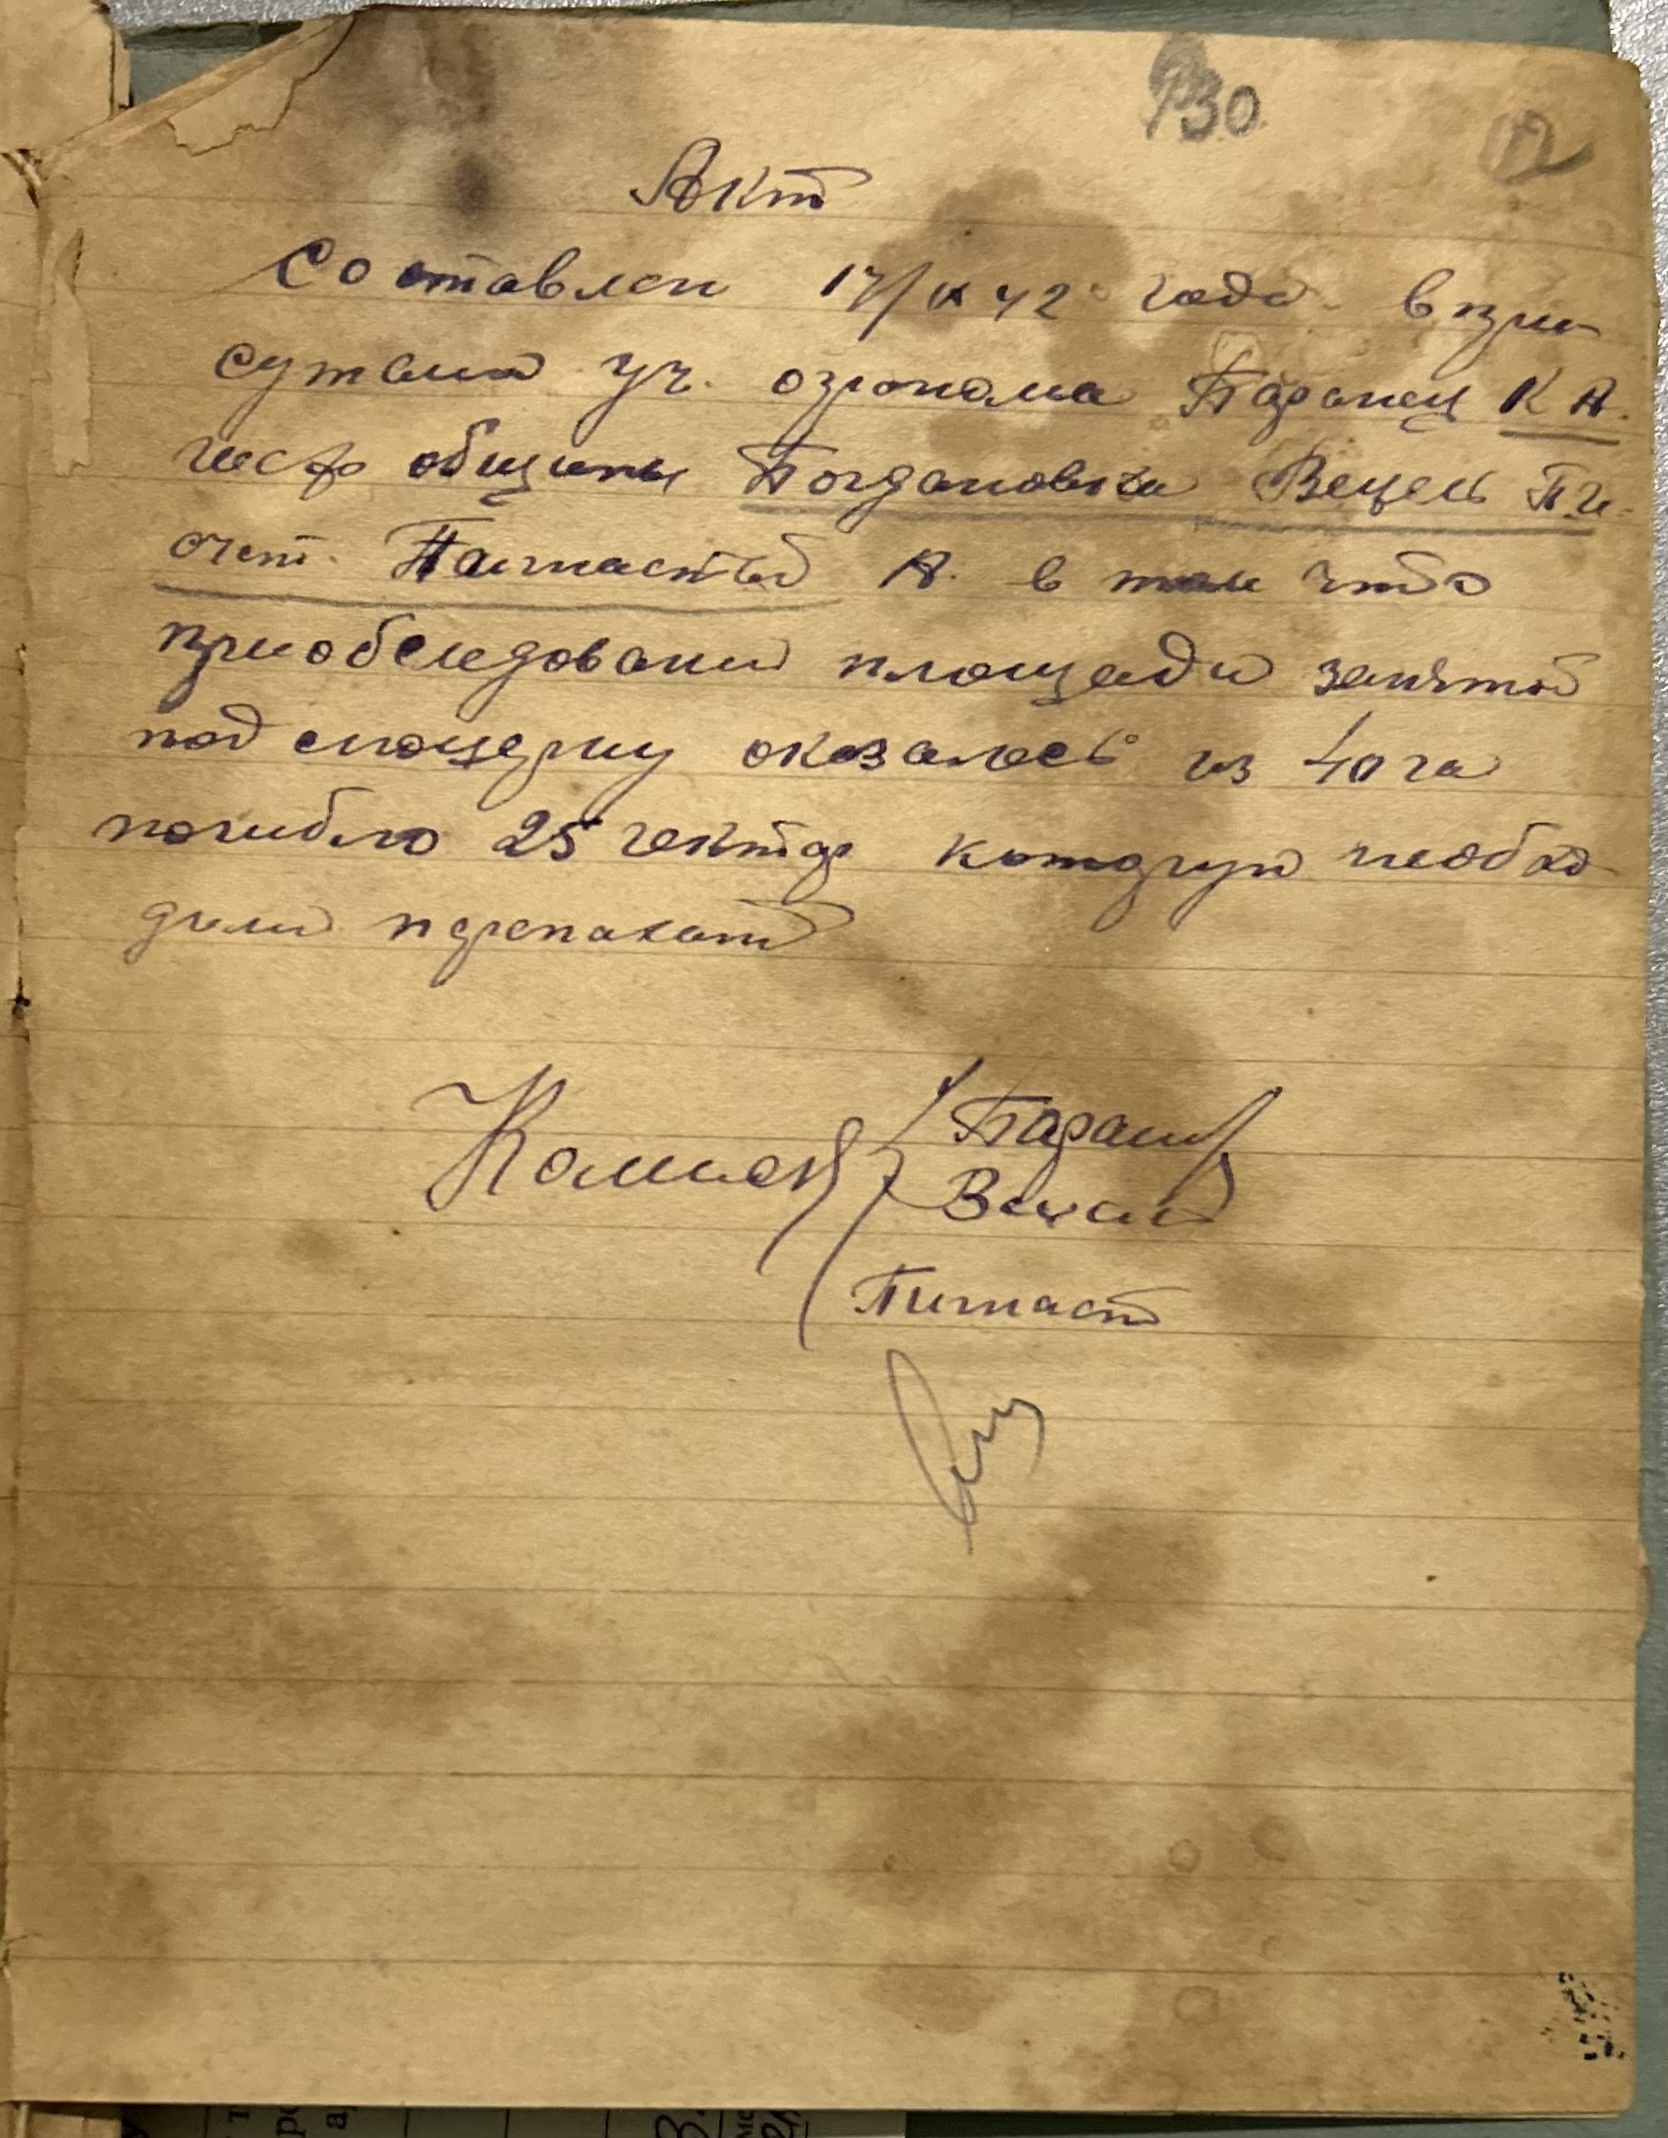 130
12
Акт
Составлен 17/IX 42 года в при
сутвии уч. агронома Таранец К А.
общины Богдановка Вецель П
счет. А. в том что
приобследовании площади занятой
под люцерну оказалось из 40 га
погибло 25 гектар которую необхо
димо перепахат
Комисия
Таранец
Вецель